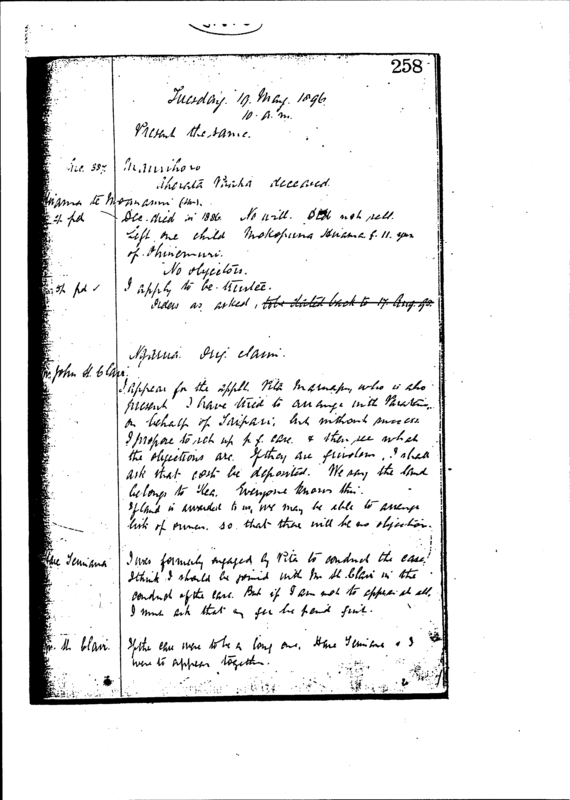 258
Tuesday 19 May 1896
10. a.m.
Present the same.
Manuihoro
deceased.
Dec. died in 1886 No will. not sell.
Left one child Mokopuna f. 11. yrs
of Ohinemuri.
No objectors.
I apply to be trustee.
Orders as asked, to be dated back to 17. Aug. 90.
Orig. claim.
Mr John St. Clair.
I appear for the applt. Pita who is also
present I have tried to arrange with
on behalf of Taipari, but without success
I propose to set up p.f. case. & then see what
the objections are. If they are frivolous, I shall
ask that costs be deposited. We say the land
belongs to Kea. Everyone knows this.
If land is awarded to us, we may be able to arrange
list of owners. so that there will be no objection.
I was formerly engaged by Pita to conduct the case.
I think I should be joined with Mr St. Clair in the
conduct of the case. But if I am not to appear at all,
I must ask that my fee be paid first.
Mr St. Clair. If the case were to be a long one, Hare Teimana & I
were to appear together.